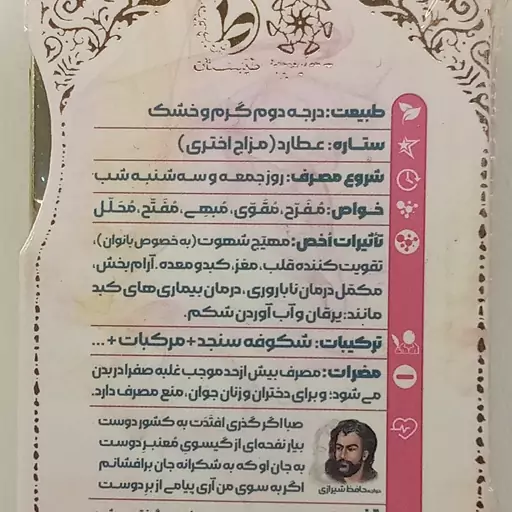 طبیعت: درجه دوم گرم و خشک
ستاره: عطارد (مزاج اختری)
شروع مصرف: روز جمعه و سه شنبه شب
خواص: مُفَرّح، مُقَوّی، مُبهی، مُفَتّح، مُحَلّل
تأثیرات أخص: مهیّج شهوت (به خصوص بانوان)،
تقویت کننده قلب، مغز، کبد و معده. آرام بخش،
مکمّل درمان ناباروری، درمان بیماری های کبد
مانند: یرقان و آب آوردن شکم.
ترکیبات: شکوفه سنجد + مرکبات + ...
مضرات: مصرف بیش از حد موجب غلبه صفرا در بدن
می شود؛ و برای دختران و زنان جوان، منع مصرف دارد.
صبا اگر گذری افتَدَت به کشور دوست
بیار نفحه ای از گیسوی مُعنبرِ دوست
به جان او که به شکرانه جان برافشانم
اگر به سوی من آری پیامی از برِ دوست
حافظ شیرازی